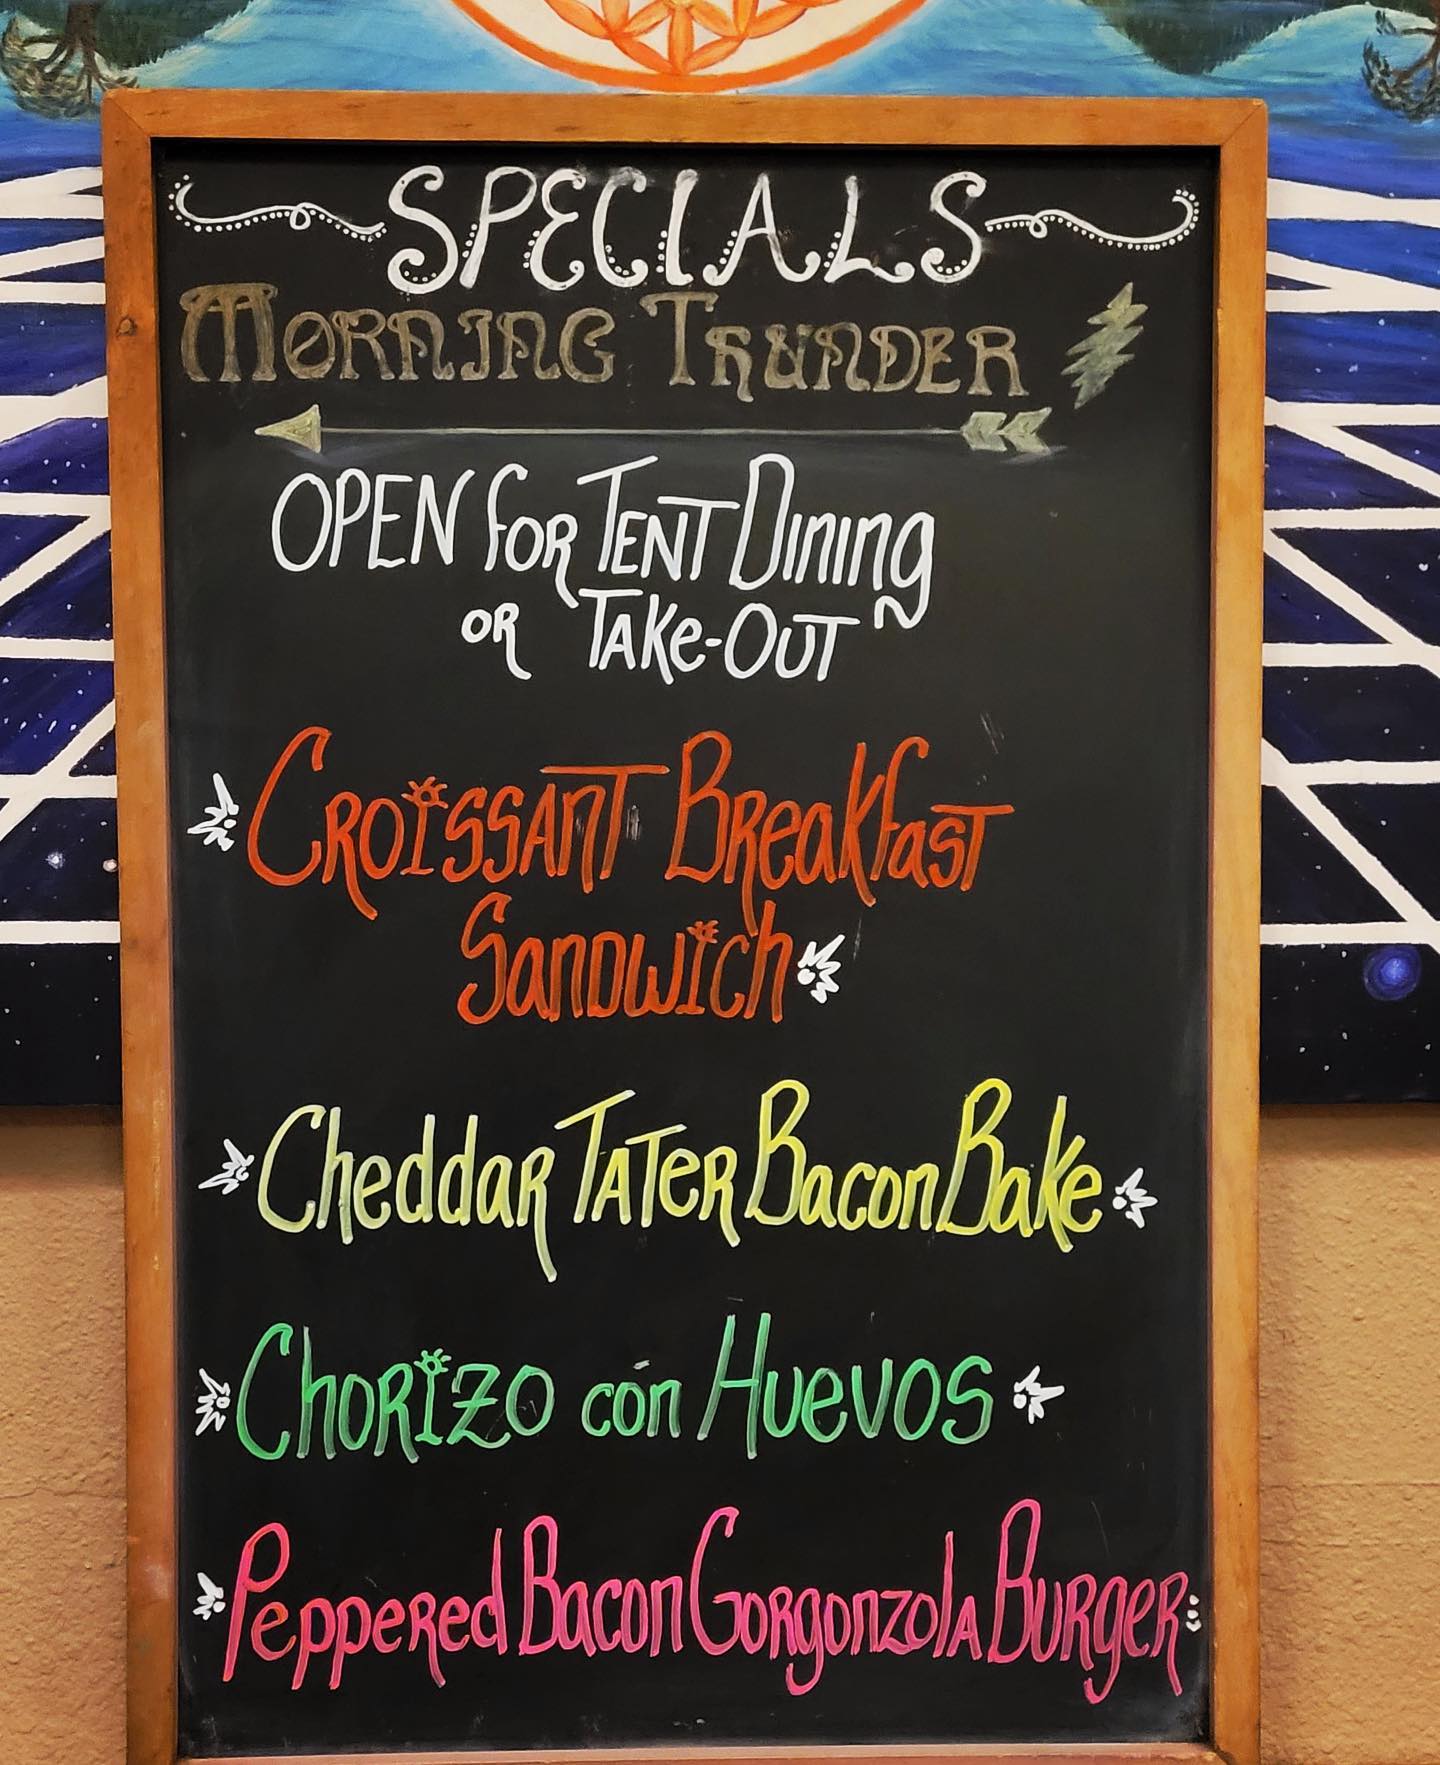 SPECIALS
MORNING THUNDER
OPEN for TENT Dining
OR TAKe-OUT
CROISSANT BReakfast
Sandwich
Cheddar TATER Bacon Bake
CHORIZO cón Huevos
Peppered Bacon Gorgonzola Burger